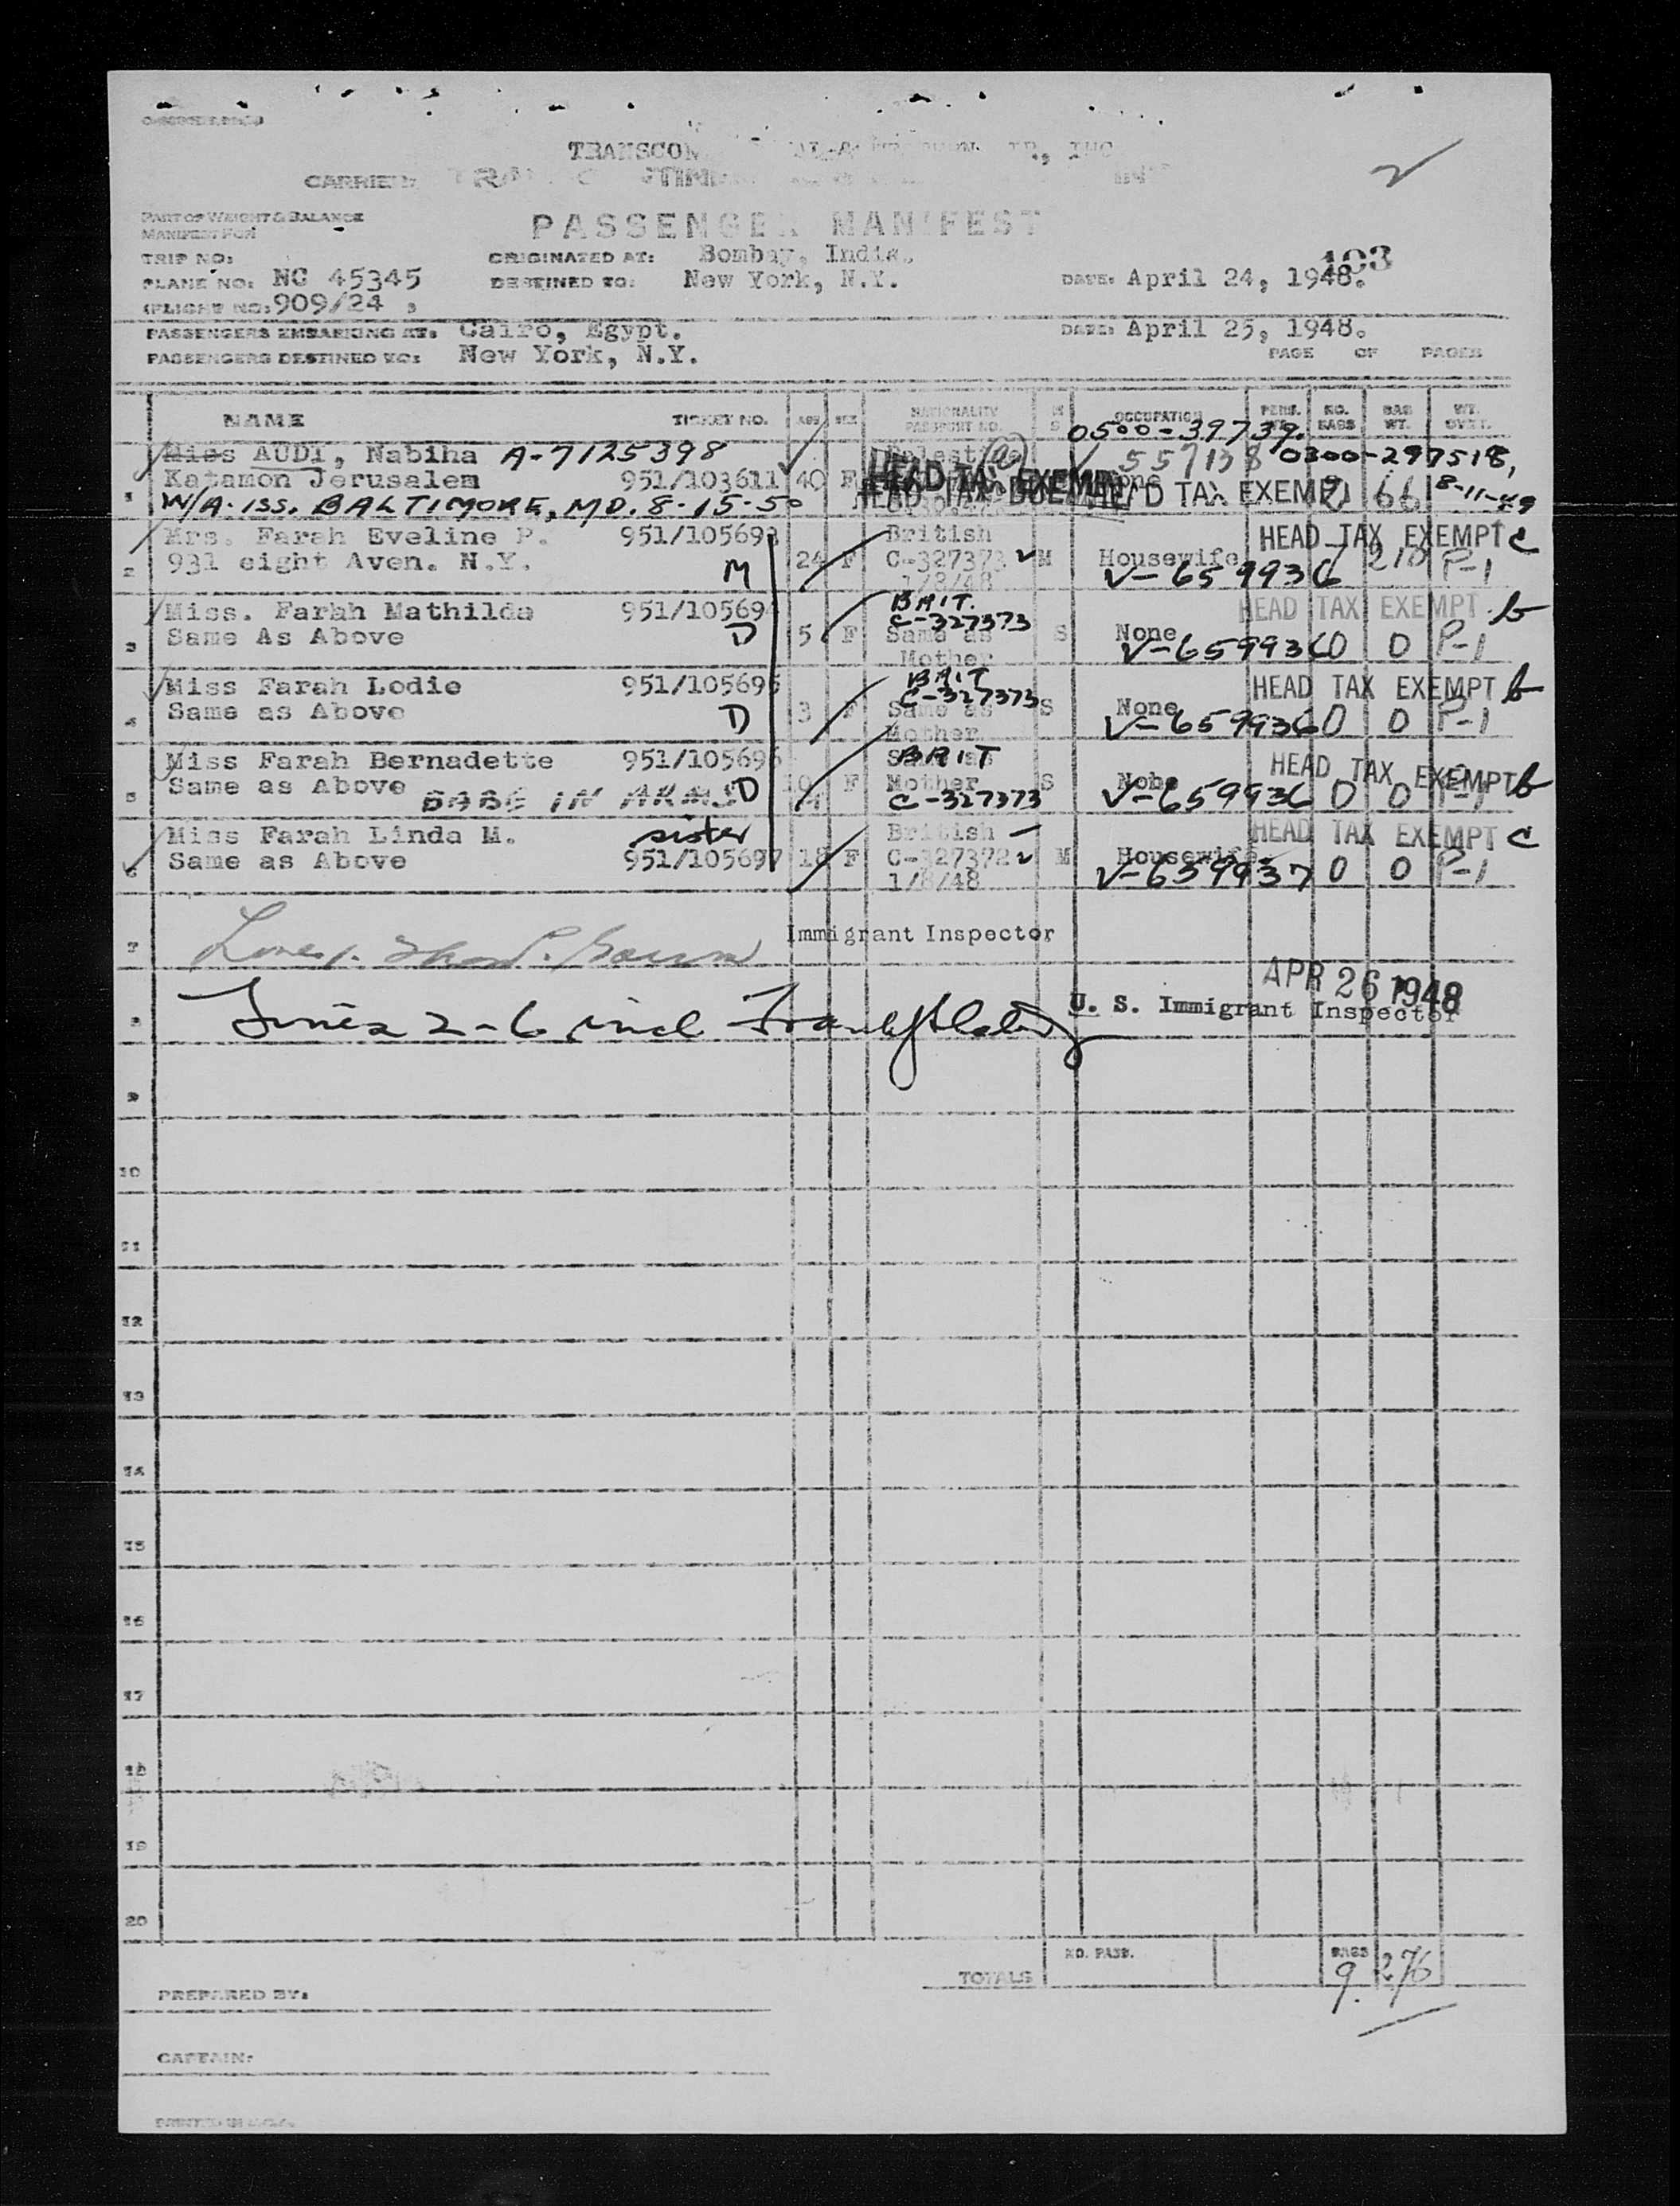 TRANSCON
CARRIER:
PART OF WEIGHT & BALANCE
MANIFEST FOR
PASSENGER MANIFEST
TRIP NO:
ORIGINATED AT: Bombay, India.
103
PLANE NO: NC 45345
DESTINED TO: New York, N.Y.
DATE: April 24, 1948.
(FLIGHT NO: 909/24
PASSENGERS EMBARKING AT: Cairo, Egypt.
DATE: April 25, 1948.
PASSENGERS DESTINED TO: New York, N.Y.
PAGE OF PAGES
NAME TICKET NO. AGE SEX NATIONALITY PASSPORT NO. M S OCCUPATION PERS. WT. NO. BAGS BAG WT. WT. OVWT.
0500-39739.
Miss AUDI, Nabiha A-7125398
557138 0300-297518,
1 Katamon Jerusalem 951/103611 40 F HEAD TAX EXEMPT HEAD TAX EXEMPT 66 8-11-49
W/A. ISS. BALTIMORE, MD. 8-15-50
Mrs. Farah Eveline P. 951/105693 British HEAD TAX EXEMPT C
2 931 eight Aven. N.Y. M 24 F C-327373 M Housewife 7 210 P-1
1/8/48 V-659936
Miss. Farah Mathilda 951/105694 BRIT. C-327373 HEAD TAX EXEMPT b
3 Same As Above D 5 F Same as Mother S None V-659936 0 0 P-1
Miss Farah Lodie 951/105695 BRIT C-327373 HEAD TAX EXEMPT b
4 Same as Above D 3 F Same as Mother S None V-659936 0 0 P-1
Miss Farah Bernadette 951/105696 Same as BRIT HEAD TAX EXEMPT b
5 Same as Above BABE IN ARMS D 10 F Mother S None V-659936 0 0 P-1
C-327373
Miss Farah Linda M. sister British HEAD TAX EXEMPT C
6 Same as Above 951/105697 18 F C-327372 M Housewife 0 0 P-1
1/8/48 V-659937
7 Immigrant Inspector
APR 26 1948
8 Lines 2-6 incl U. S. Immigrant Inspector
9
10
11
12
13
14
15
16
17
18
19
20
TOTALS NO. PASS. BAGS 9 276
PREPARED BY:
CAPTAIN:
PRINTED IN U.S.A.